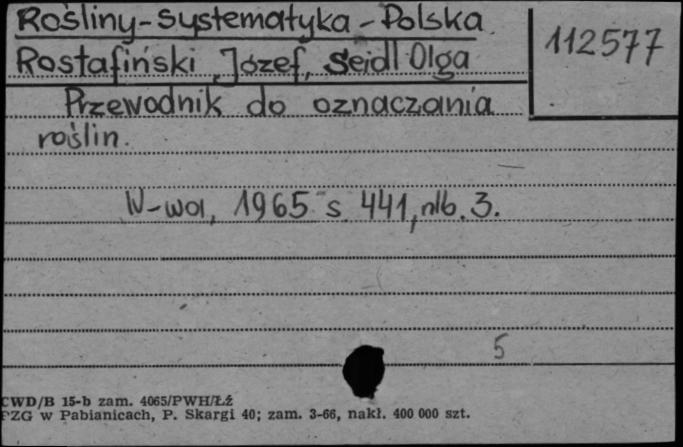 Rośliny-systematyka-Polska
112577
Rostafiński Józef, Seidl Olga
Przewodnik do oznaczania
roślin.
W-wa, 1965 s 441, nlb. 3.
5
CWD/B 15-b zam. 4065/PWH/Łź
PZG w Pabianicach, P. Skargi 40; zam. 3-66, nakł. 400 000 szt.